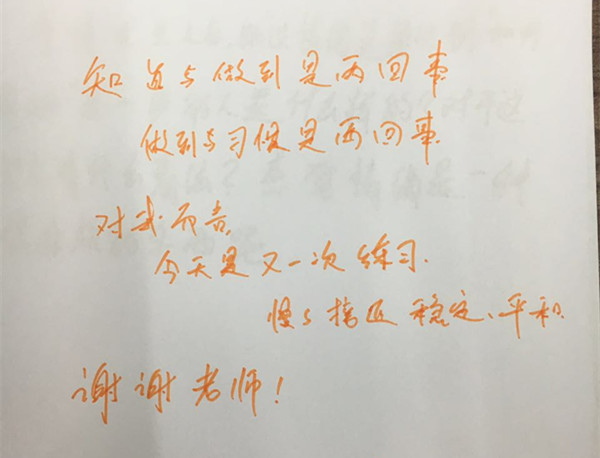 知道与做到是两回事
做到与习惯是两回事
对我而言,
今天是又一次练习.
慢慢接近 稳定、平和
谢谢老师!